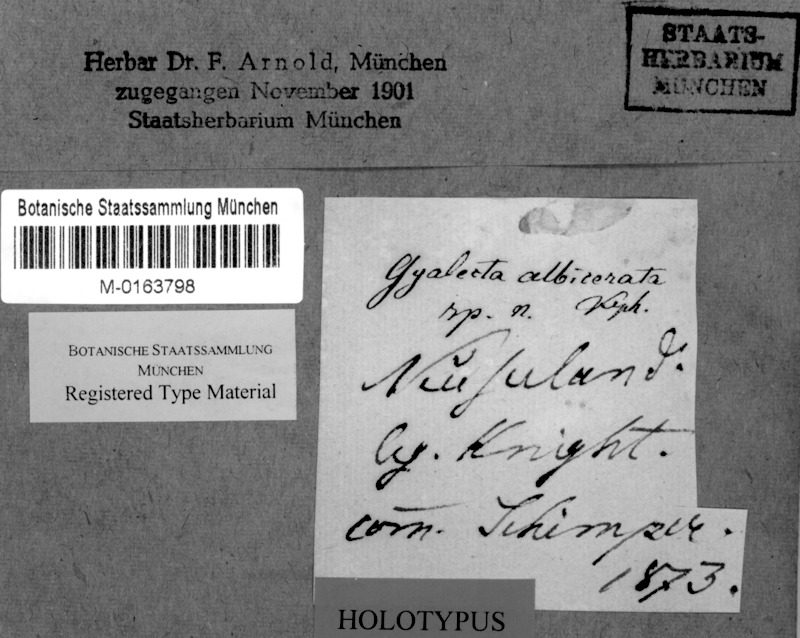 Herbar Dr. F. Arnold, München
zugegangen November 1901
Staatsherbarium München
STAATS-
HERBARIUM
MÜNCHEN
Botanische Staatssammlung München
M-0163798
BOTANISCHE STAATSSAMMLUNG
MÜNCHEN
Registered Type Material
Gyalecta albicerata
sp. n. Kph.
Neuseeland.
lg. Knight.
com. Schimper.
1873.
HOLOTYPUS